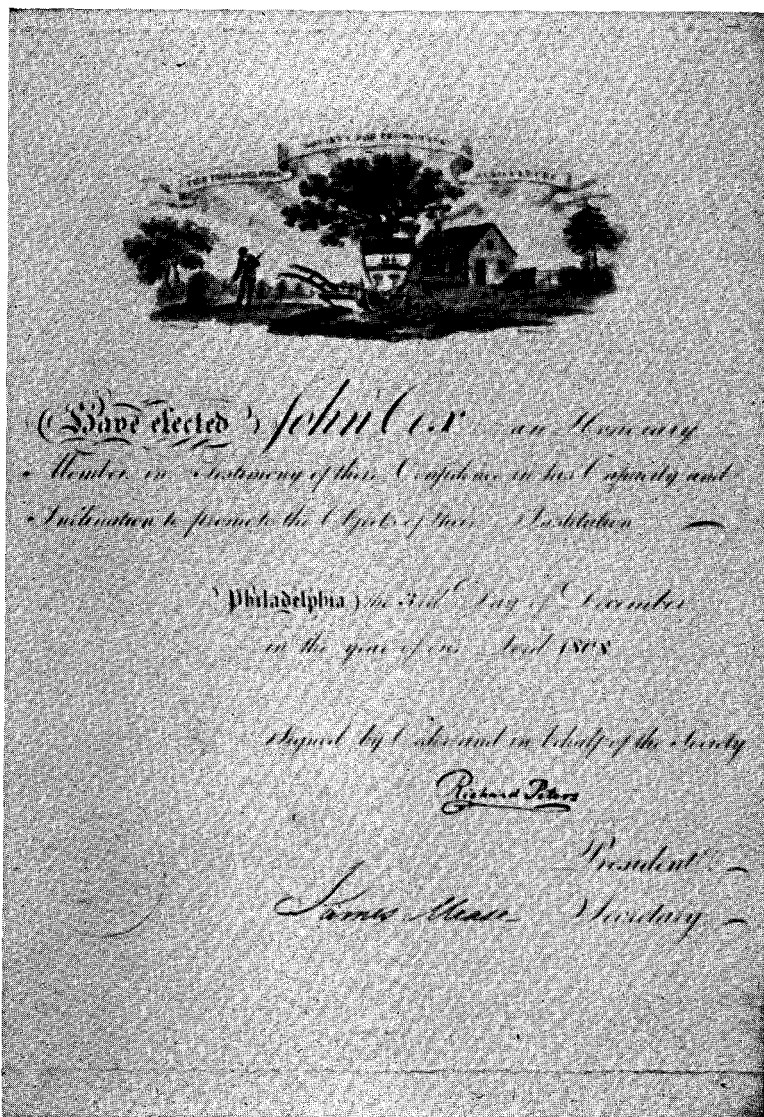 THE PHILADELPHIA SOCIETY FOR PROMOTING AGRICULTURE
Have elected John Cox an Honorary
Member in Testimony of their Confidence in his Capacity and
Inclination to promote the Objects of their Institution
Philadelphia the 3rd Day of December
in the year of our Lord 1808
Signed by Order and in behalf of the Society
Richard Peters
President
James Mease Secretary